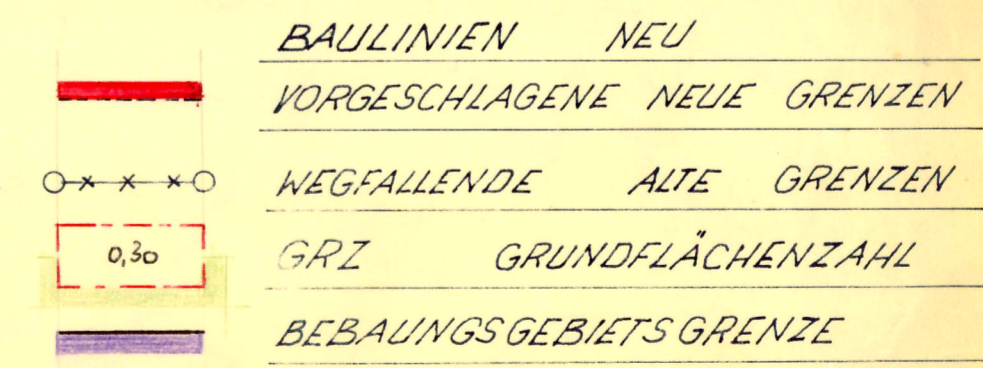 BAULINIEN NEU
VORGESCHLAGENE NEUE GRENZEN
WEGFALLENDE ALTE GRENZEN
0,30 GRZ GRUNDFLÄCHENZAHL
BEBAUNGSGEBIETSGRENZE